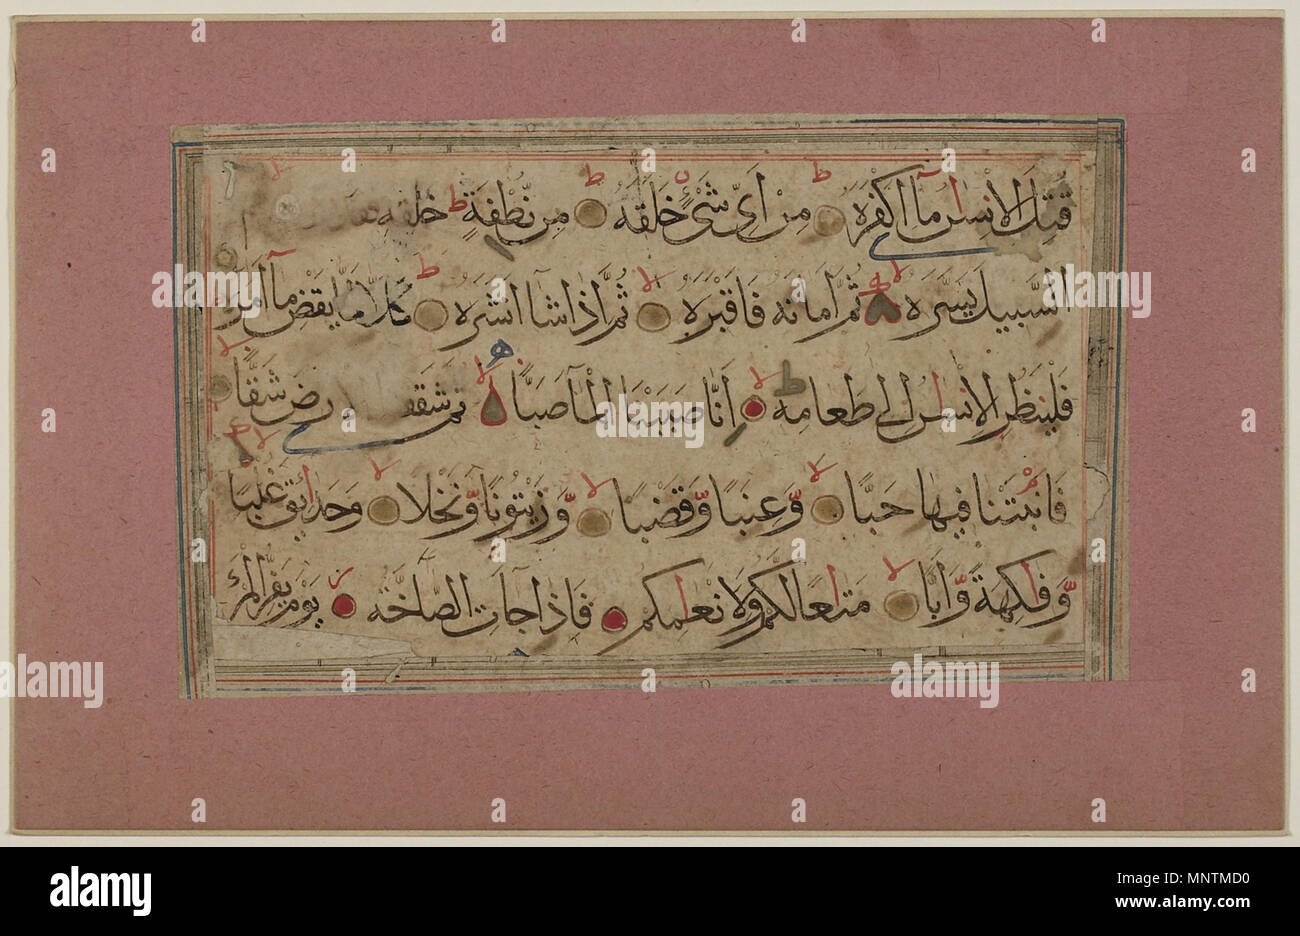 قُتِلَ الْاِنْسٰنُ مَآ اَكْفَرَهُ مِنْ اَيِّ شَيْءٍ خَلَقَهُ مِنْ نُّطْفَةٍ خَلَقَهُ
السَّبِيلَ يَسَّرَهُ ثُمَّ اَمَاتَهُ فَاَقْبَرَهُ ثُمَّ اِذَا شَآءَ اَنْشَرَهُ كَلَّا لَمَّا يَقْضِ مَآ اَمَرَهُ
فَلْيَنْظُرِ الْاِنْسٰنُ اِلٰى طَعَامِهِ اَنَّا صَبَبْنَا الْمَآءَ صَبًّا ثُمَّ شَقَقْنَا شَقًّا
فَاَنْبَتْنَا فِيهَا حَبًّا وَّعِنَبًا وَّقَضْبًا وَّزَيْتُونًا وَّنَخْلًا وَحَدَآئِقَ غُلْبًا
وَّفٰكِهَةً وَّاَبًّا مَتٰعًا لَكُمْ وَلِاَنْعٰمِكُمْ فَاِذَا جَآءَتِ الصَّآخَّةُ يَوْمَ يَفِرُّ الْمَرْءُ
a alamy stock photo
alamy
Image ID: MNTMD0
www.alamy.com